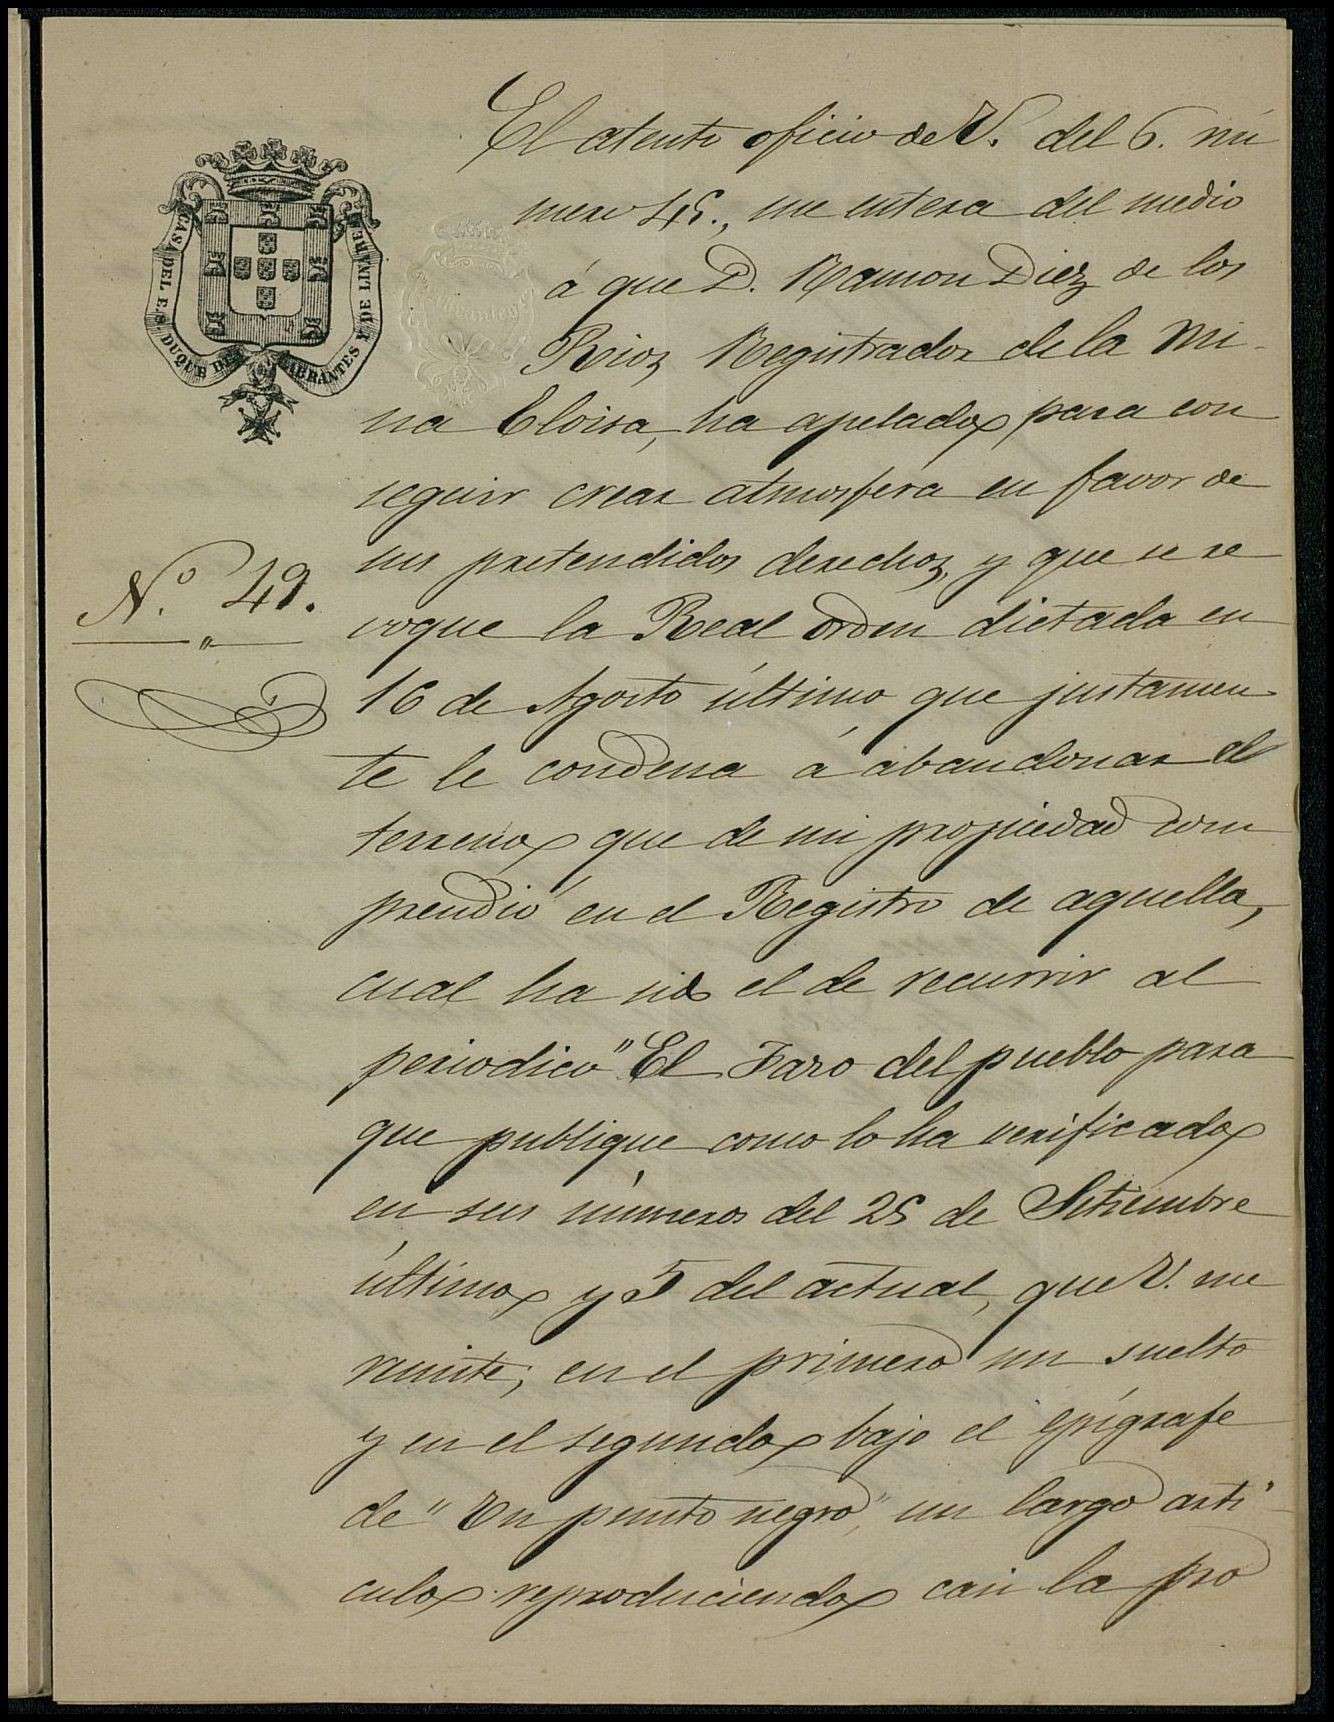 El atento oficio de V. del 6. nú
mero 45., me entera del medio
á que D. Ramon Diez de los
Rios, Registrador de la Mi-
na Eloisa, ha apelado, para con
seguir crear atmosfera en favor de
sus pretendidos derechos, y que se re
voque la Real orden dictada en
16 de Agosto último que justamen
te le condena á abandonar el
terreno que de mi propiedad com
prendió en el Registro de aquella,
cual ha sido el de recurrir al
periodico "El Faro del pueblo para
que publique como lo ha verificado
en sus números del 25 de Setiembre
último y 5 del actual, que V. me
remite; en el primero un suelto
y en el segundo bajo el epígrafe
de "Un punto negro", un largo artí
culo reproduciendo casi la pro
N.º 49.
CASA DEL E.S. DUQUE DE ABRANTES Y DE LINARES